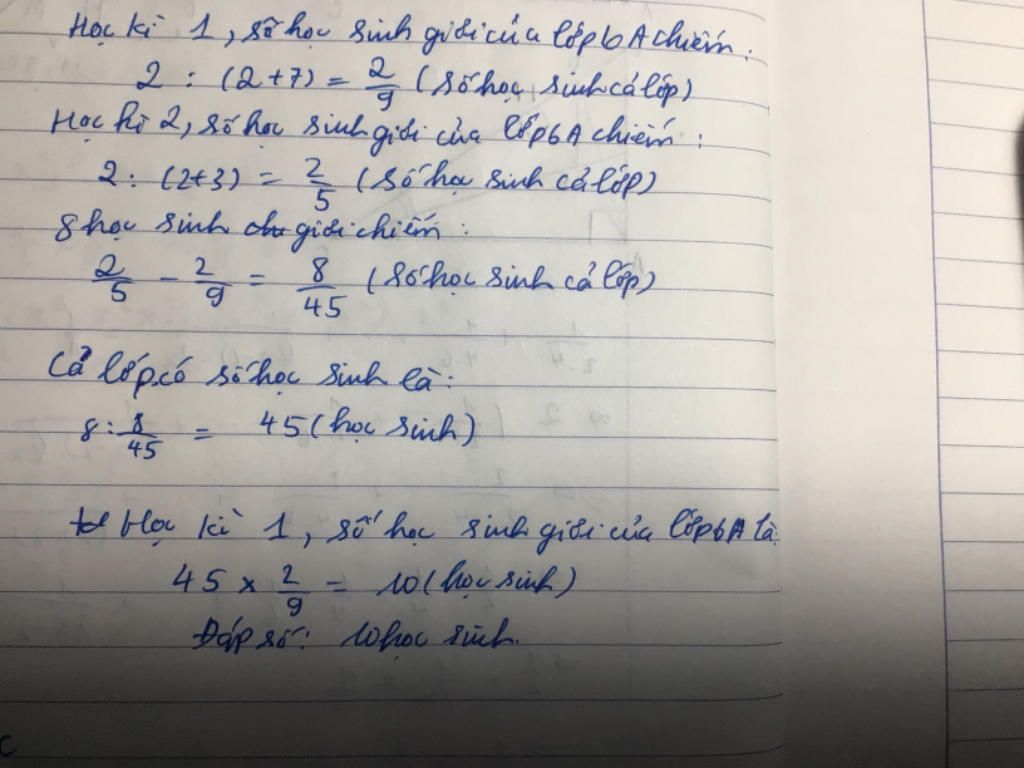 Học kì 1, số học sinh giỏi của lớp 6A chiếm:
2 : (2+7) = 2/9 (số học sinh cả lớp)
Học kì 2, số học sinh giỏi của lớp 6A chiếm:
2 : (2+3) = 2/5 (số học sinh cả lớp)
8 học sinh giỏi chiếm:
2/5 - 2/9 = 8/45 (số học sinh cả lớp)
Cả lớp có số học sinh là:
8 : 8/45 = 45 (học sinh)
Học kì 1, số học sinh giỏi của lớp 6A là
45 x 2/9 = 10 (học sinh)
Đáp số: 10 học sinh.